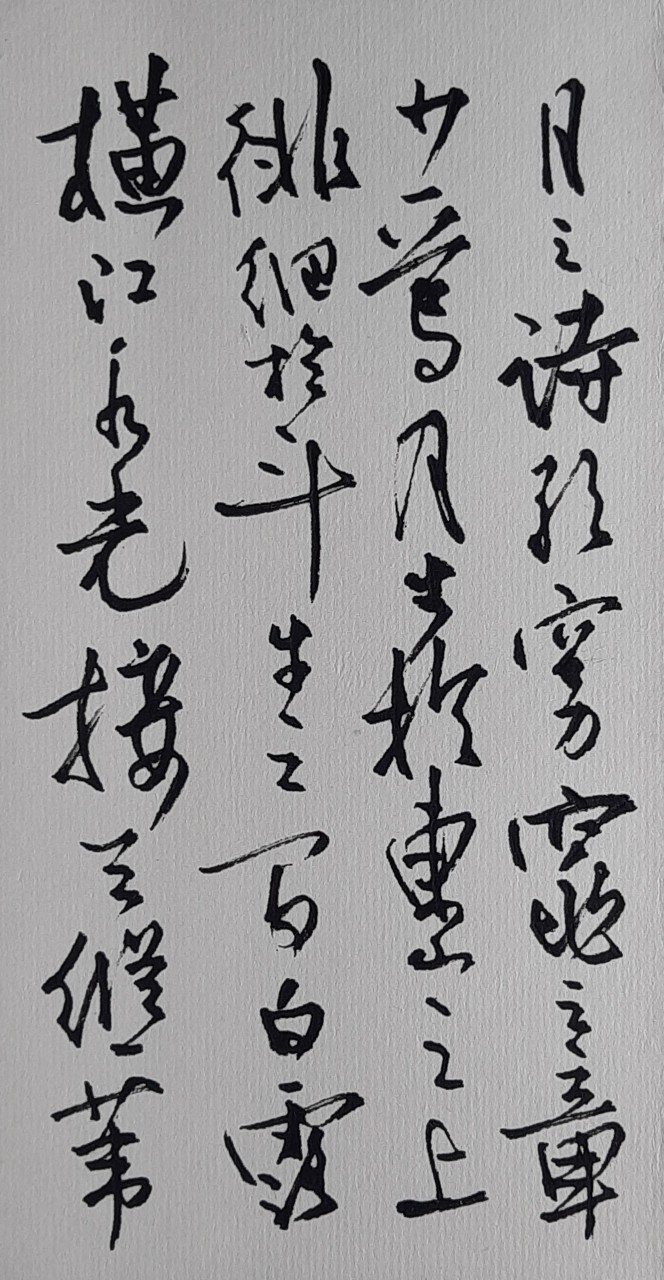 月之詩歌窈窕之章
少焉月出於東山之上
徘徊於斗牛之間白露
橫江水光接天縱一葦